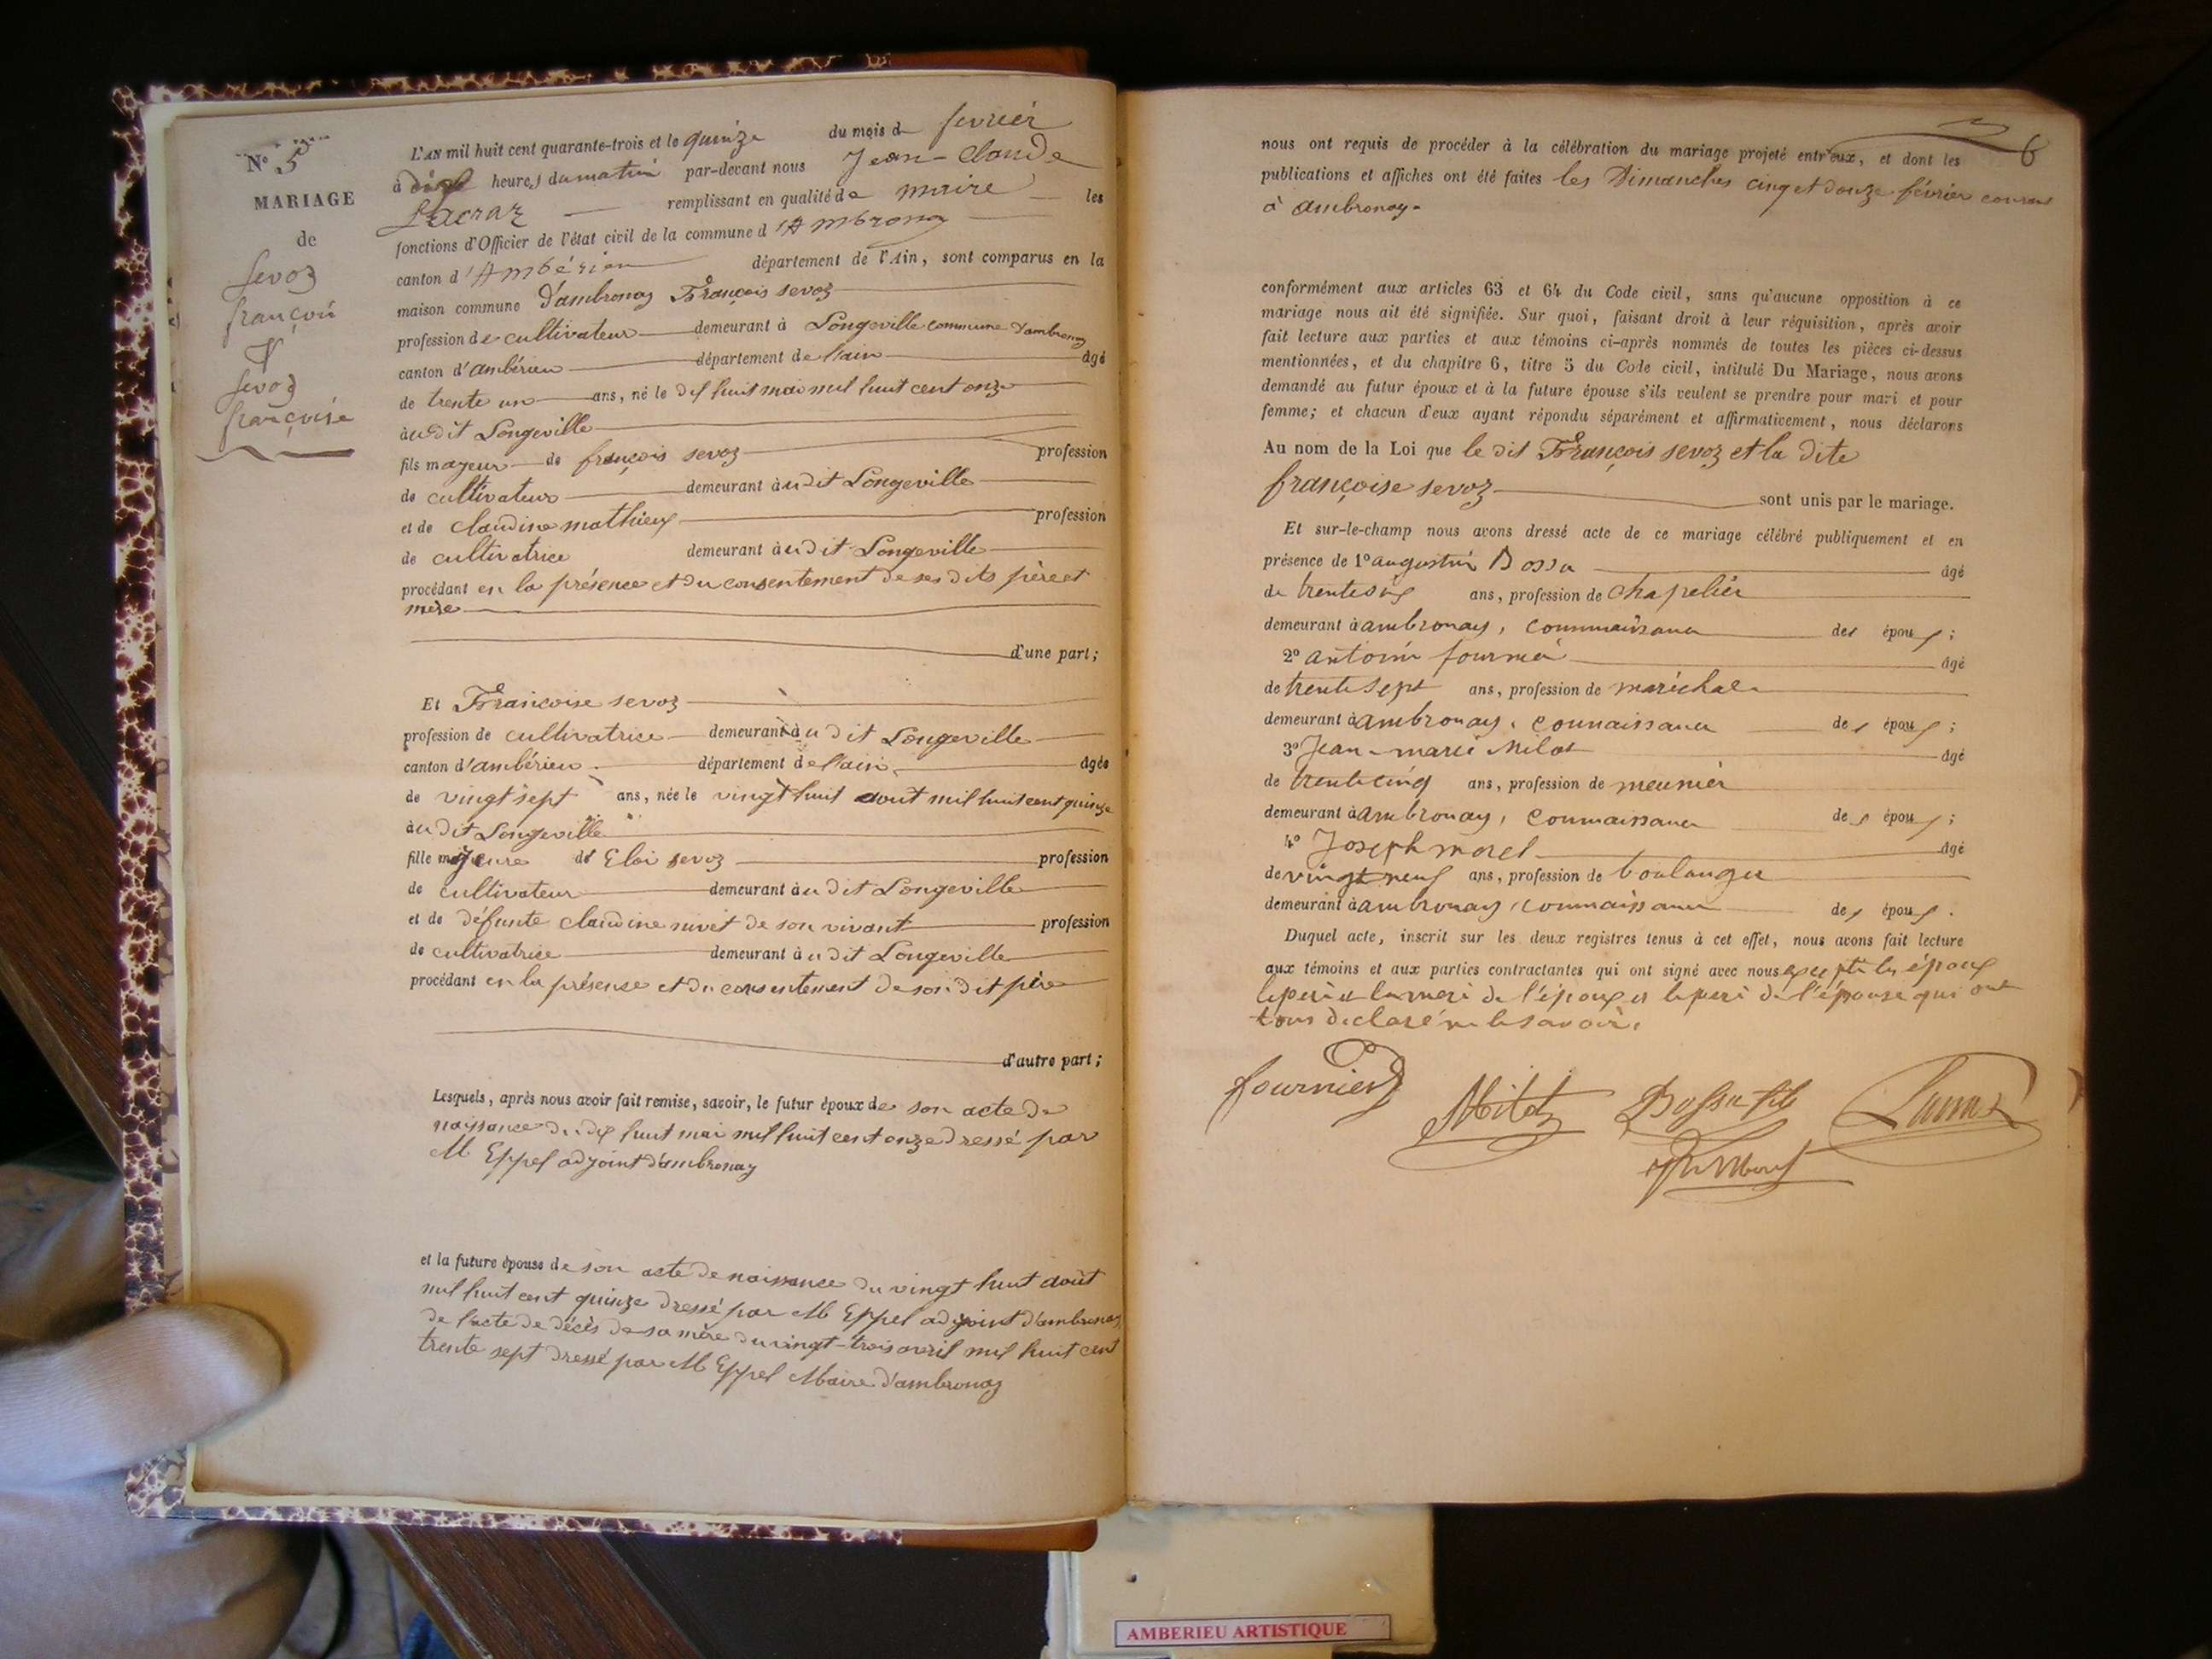 N° 5
MARIAGE
de
Sevoz
françois
&
Sevoz
françoise
L'AN mil huit cent quarante-trois et le quinze du mois de fevrier
à heures du matin par-devant nous Jean-Claude
remplissant en qualité de maire les
fonctions d'Officier de l'état civil de la commune d'Ambronay
canton d'Ambérieu département de l'Ain, sont comparus en la
maison commune d'ambronay François sevoz
profession de cultivateur demeurant à Longeville commune d'ambronay
canton d'ambérieu département de l'ain âgé
de trente un ans, né le dix huit mai mil huit cent onze
audit Longeville
fils majeur de françois sevoz profession
de cultivateur demeurant audit Longeville
et de claudine mathieu profession
de cultivatrice demeurant audit Longeville
procédant en la présence et du consentement de ses dits père et
mère
d'une part;
Et Françoise sevoz
profession de cultivatrice demeurant audit Longeville
canton d'ambérieu département de l'ain âgée
de vingt sept ans, née le vingt huit aout mil huit cent quinze
audit Longeville
fille majeure de Eloi sevoz profession
de cultivateur demeurant audit Longeville
et de défunte claudine nivet de son vivant profession
de cultivatrice demeurant audit Longeville
procédant en la présense et du consentement de son dit père
d'autre part;
Lesquels, après nous avoir fait remise, savoir, le futur époux de son acte de
naissance du dix huit mai mil huit cent onze dressé par
M Eppel adjoint d'ambronay
et la future épouse de son acte de naissance du vingt huit août
mil huit cent quinze dressé par M Eppel adjoint d'ambronay
de l'acte de décès de sa mère du vingt-trois avril mil huit cent
trente sept dressé par M Eppel Maire d'ambronay
6
nous ont requis de procéder à la célébration du mariage projeté entr'eux, et dont les
publications et affiches ont été faites les Dimanches cinq et douze février courant
à ambronay.
conformément aux articles 63 et 64 du Code civil, sans qu'aucune opposition à ce
mariage nous ait été signifiée. Sur quoi, faisant droit à leur réquisition, après avoir
fait lecture aux parties et aux témoins ci-après nommés de toutes les pièces ci-dessus
mentionnées, et du chapitre 6, titre 5 du Code civil, intitulé Du Mariage, nous avons
demandé au futur époux et à la future épouse s'ils veulent se prendre pour mari et pour
femme; et chacun d'eux ayant répondu séparément et affirmativement, nous déclarons
Au nom de la Loi que le dit François sevoz et la dite
françoise sevoz sont unis par le mariage.
Et sur-le-champ nous avons dressé acte de ce mariage célébré publiquement et en
présence de 1° augustin Bossu âgé
de trente six ans, profession de chapelier
demeurant à ambronay, connaissance des époux;
2° antoine fournier âgé
de trente sept ans, profession de maréchal
demeurant à ambronay, connaissance des époux;
3° Jean-marie Milot âgé
de trente cinq ans, profession de meunier
demeurant à ambronay, connaissance des époux;
4° Joseph morel âgé
de vingt neuf ans, profession de boulanger
demeurant à ambronay, connaissance des époux.
Duquel acte, inscrit sur les deux registres tenus à cet effet, nous avons fait lecture
aux témoins et aux parties contractantes qui ont signé avec nous excepté les époux
le père et la mere de l'époux et le pere de l'épouse qui ont
tous declaré ne le savoir.
fournier Milot Bossu fils
AMBERIEU ARTISTIQUE